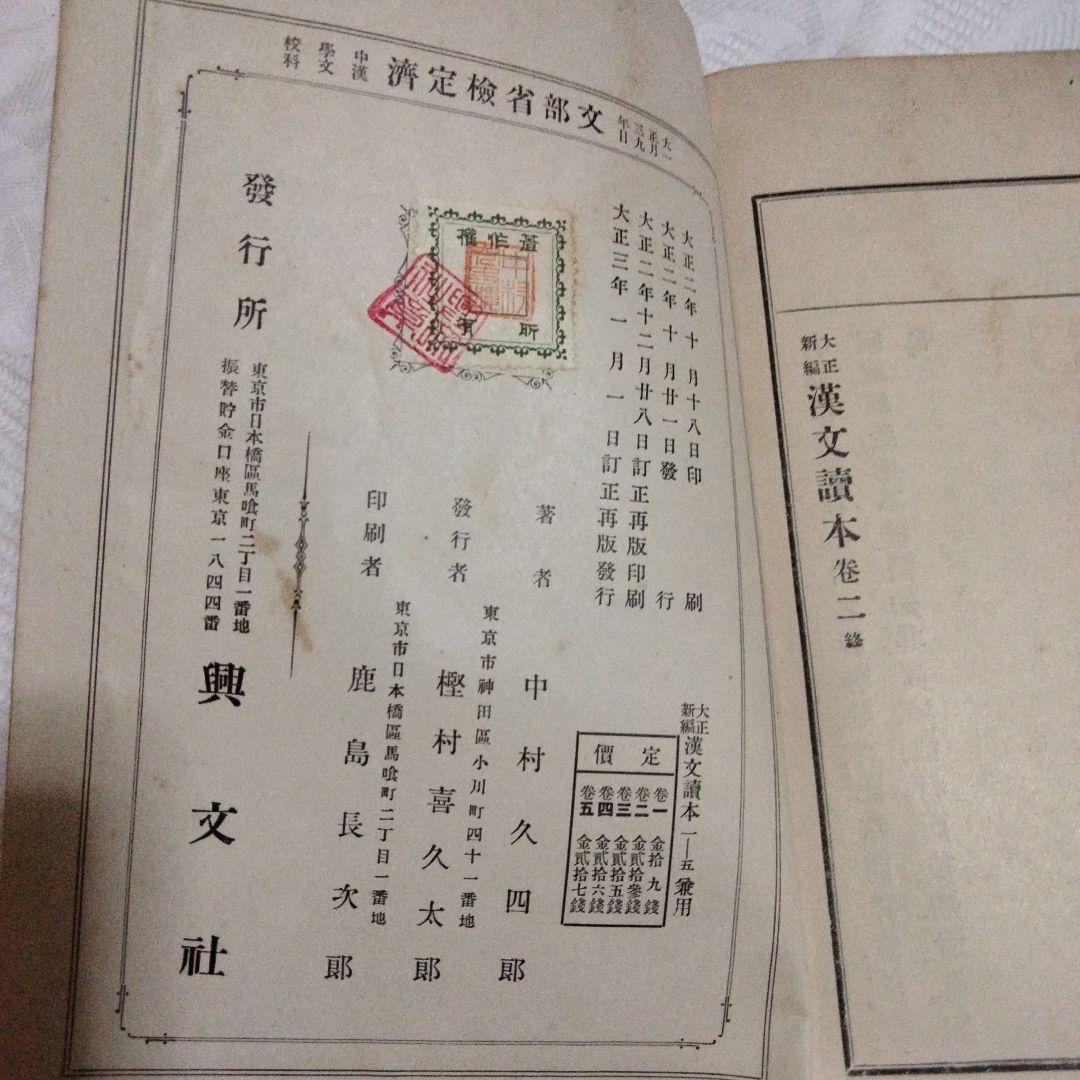 大正新編 漢文讀本 卷二 終
大正三年一月九日 文部省檢定濟 漢文科 中學校
大正二年十月十八日印刷
大正二年十月廿一日發行
大正二年十二月廿八日訂正再版印刷
大正三年一月一日訂正再版發行
著作權
所有
大正新編 漢文讀本 一—五 兼用
定價
卷一 金拾九錢
卷二 金貳拾參錢
卷三 金貳拾五錢
卷四 金貳拾六錢
卷五 金貳拾七錢
著者 中村久四郎
東京市神田區小川町四十一番地
發行者 樫村喜久太郎
東京市日本橋區馬喰町二丁目一番地
印刷者 鹿島長次郎
東京市日本橋區馬喰町二丁目一番地
發行所 興文社
振替貯金口座東京一八四四番